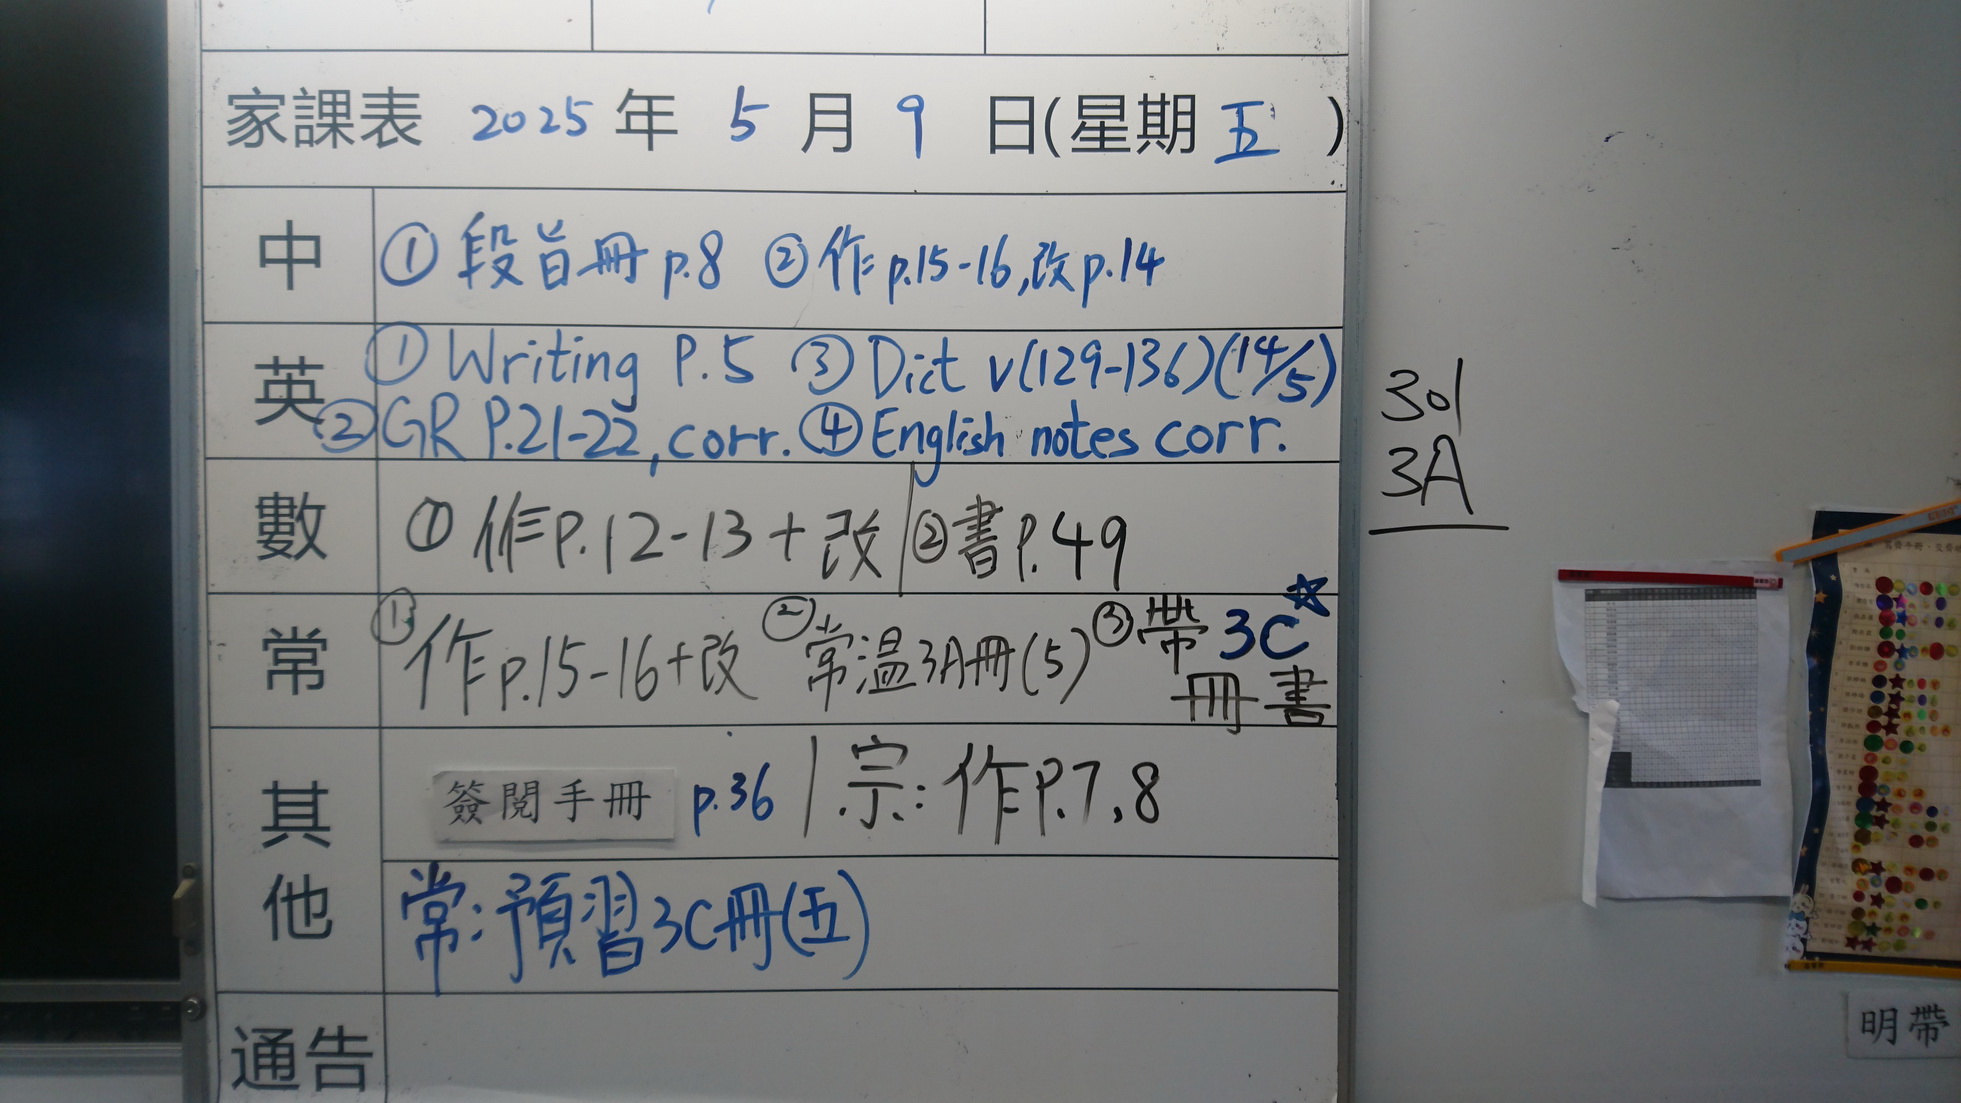 家課表 2025 年 5 月 9 日(星期五)
中 ① 段旨冊 p.8 ② 作 p.15-16,改 p.14
英 ① Writing P.5 ③ Dict v(129-136)(14/5)
② GR P.21-22, corr. ④ English notes corr.
數 ① 作 P.12-13 + 改 | ② 書 P.49
常 ① 作 p.15-16+改 ② 常溫3A冊(5) ③ 帶 3C☆
冊書
其他 簽閱手冊 p.36 / 宗: 作 P.7,8
常: 預習3C冊(五)
通告
301
3A
明帶